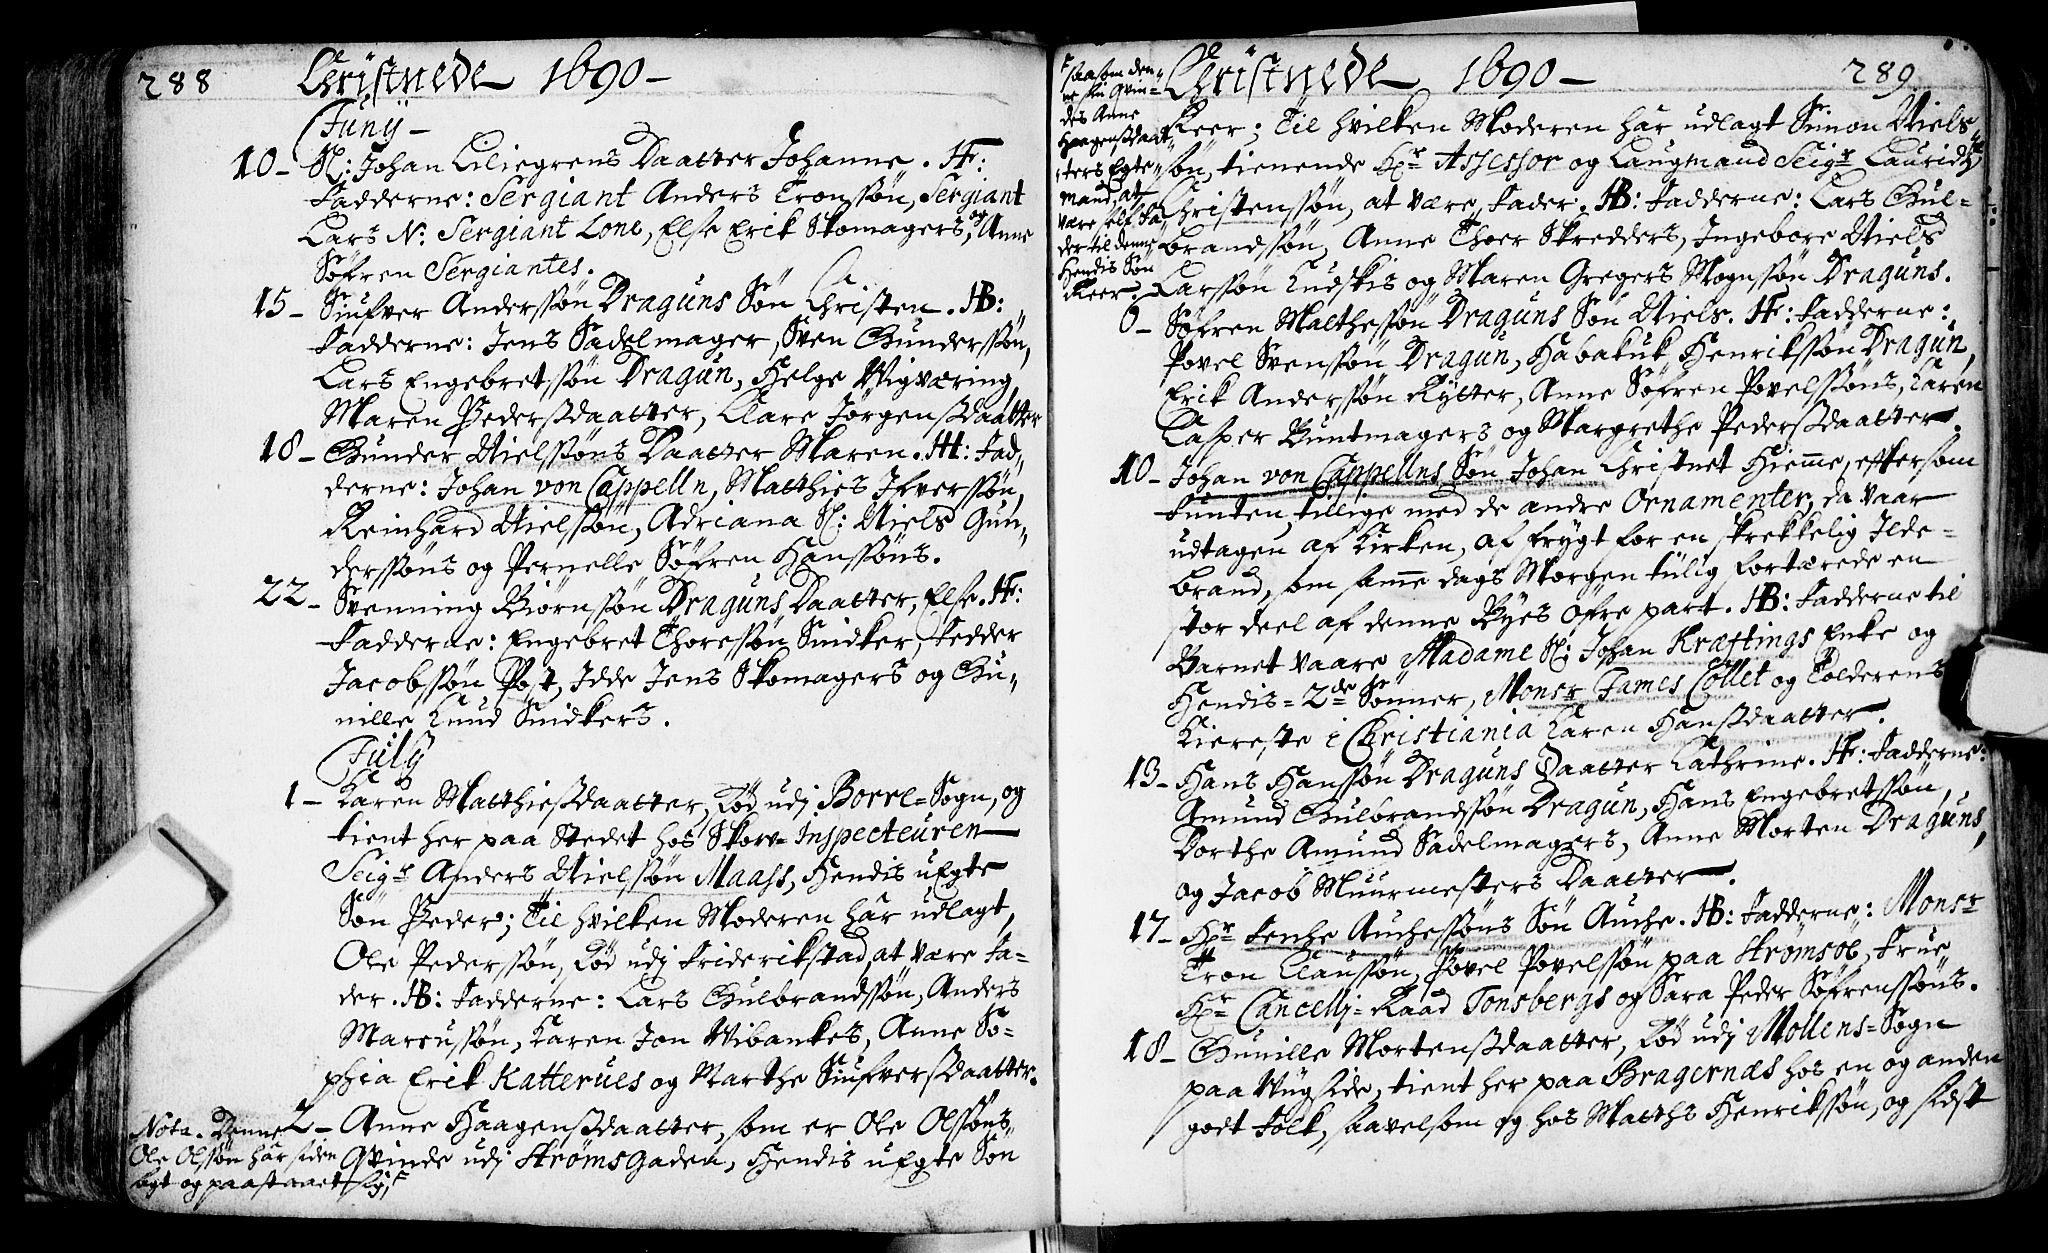 288
Christnede 1690
Junij
10 Sl: Johan Liliegrens Daatter Johanne. Hr:
Fadderne: Sergiant Anders Tronssøn, Sergiant
Lars N: Sergiant Lone, Else Erik Skomagers, og Anne
Søfren Sergiantes.
15 Siufver Anderssøn Draguns Søn Christen. HB:
Fadderne: Jens Sadelmager, Sven Gunderssøn,
Lars Engebretssøn Dragun, Helge Wigværing
Maren Pederssdaatter, Clare Jørgenssdaatter
18 Gunder Nielssøns Daatter Maren. HH: Fad-
derne: Johan von Cappelln, Matthies Ifverssøn,
Reinhard Nielssøn, Adriana Sl: Niels Gun-
derssøns og Pernelle Søfren Hanssøns.
22 Svenning Biørnssøn Draguns Daatter, Else. Hr:
Fadderne: Engebret Thoressøn Snidker, Pedder
Jacobssøn Post, Idde Jens Skomagers og Gu-
nille Knud Snidkers.
July
1 Karen Matthiessdaatter, Fød udj Borre-Sogn, og
tient her paa Stedet hos Skov-Inspecteuren
Seigr Anders Nielssøn Maass, Hendis uEgte
Søn Peder; Til hvilken Moderen har udlagt,
Ole Pederssøn, Fød udj Friderikstad, at være Fa-
der. HB: Fadderne: Lars Gulbrandssøn, Anders
Marcussøn, Karen Jon Wibankes, Anne So-
phia Erik Katterues og Marthe Siufverssdaatter.
2 Anne Haagenssdaatter, som er Ole Olssøns
Qvinde udj Strømsgaden, Hendis uEgte Søn
Nota. Denne
Ole Olssøn har siden
sagt og paastaaet sig,
289
Christnede 1690
saasom den-
ne sin Qvin-
des Anne
Haagenssdaat-
ters Egte-
mand, at
være self Fa-
der til denne
Hendis Søn
Peer.
Peer; Til hvilken Moderen har udlagt Simon Niels-
søn, tienende Hr Assessor og Laugmand Seigr Lauridz
Christenssøn, at være Fader. HB: Fadderne: Lars Gul-
brandssøn, Anne Thoer Skredders, Ingebore Niels
Larssøn Kudskis og Maren Gregers Mognssøn Draguns.
6 Søfren Malthessøn Draguns Søn Niels. Hr: Fadderne:
Povel Svenssøn Dragun, Habakuk Henrikssøn Dragun,
Erik Anderssøn Rytter, Anne Søfren Povelssøns, Karen
Casper Buntmagers og Margrethe Pederssdaatter.
10 Johan von Cappellns Søn Johan Christnet Hieme, eftersom
Funten, tillige med de andre Ornamenter, da vaar
udtagen af Kirken, af frygt for en skrekkelig Ilde-
brand, som same dags Morgen tiilig fortærede en
stor deel af denne Byes øfre part. HB: Fadderne til
Barnet vaare Madame Sl: Johan Kræftings Enke og
Hendis 2de Sønner, Monsr James Collet og Tolderens
Kiereste i Christiania Karen Hanssdaatter.
13 Hans Hanssøn Draguns Daatter Cathrine. Hr: Fadderne:
Amund Gulbrandssøn Dragun, Hans Engebretssøn,
Dorthe Amund Sadelmagers, Anne Morten Draguns,
og Jacob Muurmesters Daatter.
17 Hr Fenche Auchessøns Søn Auche. HB: Fadderne: Monsr
Tron Claussøn, Povel Povelssøn paa Strømsøe, Frue
Hr Cancellj-Raad Tonsbergs og Sara Peder Søfrenssøns.
18 Gunille Mortenssdaatter, Fød udj Mollens-Sogn
paa Wugside, tient her paa Bragernæs hos en og anden
godt Folk, saavelsom og hos Matths Henrikssøn, og sidst